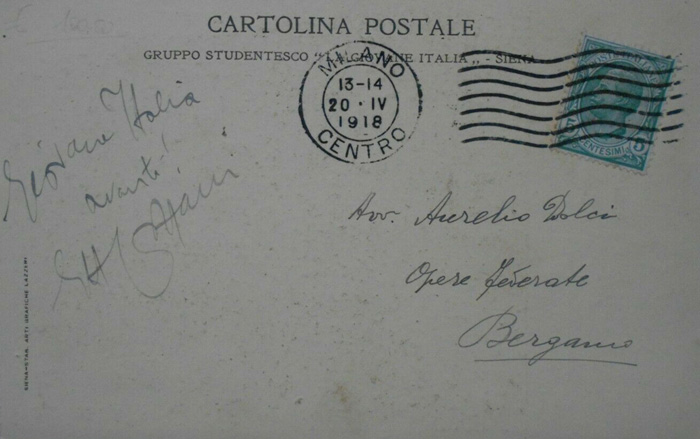 CARTOLINA POSTALE
GRUPPO STUDENTESCO "LA GIOVANE ITALIA" - SIENA
MILANO
13-14
20 · IV
1918
CENTRO
POSTE ITALIANE
5
CENTESIMI
Giovane Italia
avanti!
Avv. Aurelio Dolci
Opere Federate
Bergamo
SIENA-STAB. ARTI GRAFICHE LAZZERI